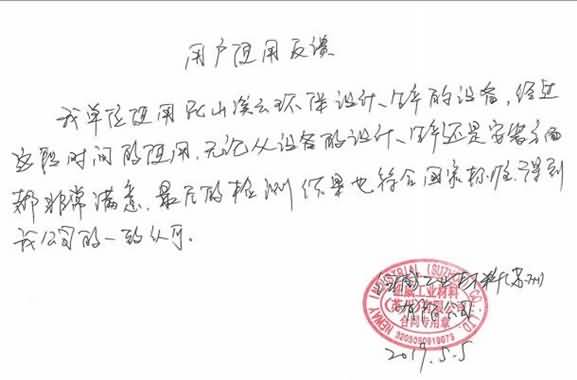 用户使用反馈
我单位使用昆山溪云环保设计、生产的设备,经过
这段时间的使用,无论从设备的设计、生产还是安装方面
都非常满意,最后的检测结果也符合国家标准,得到
我公司的一致认可。
工业材料(苏州)
有限公司
2019.5.5
INDUSTRIAL (SUZHOU) CO., LTD.
工业材料
合同专用章